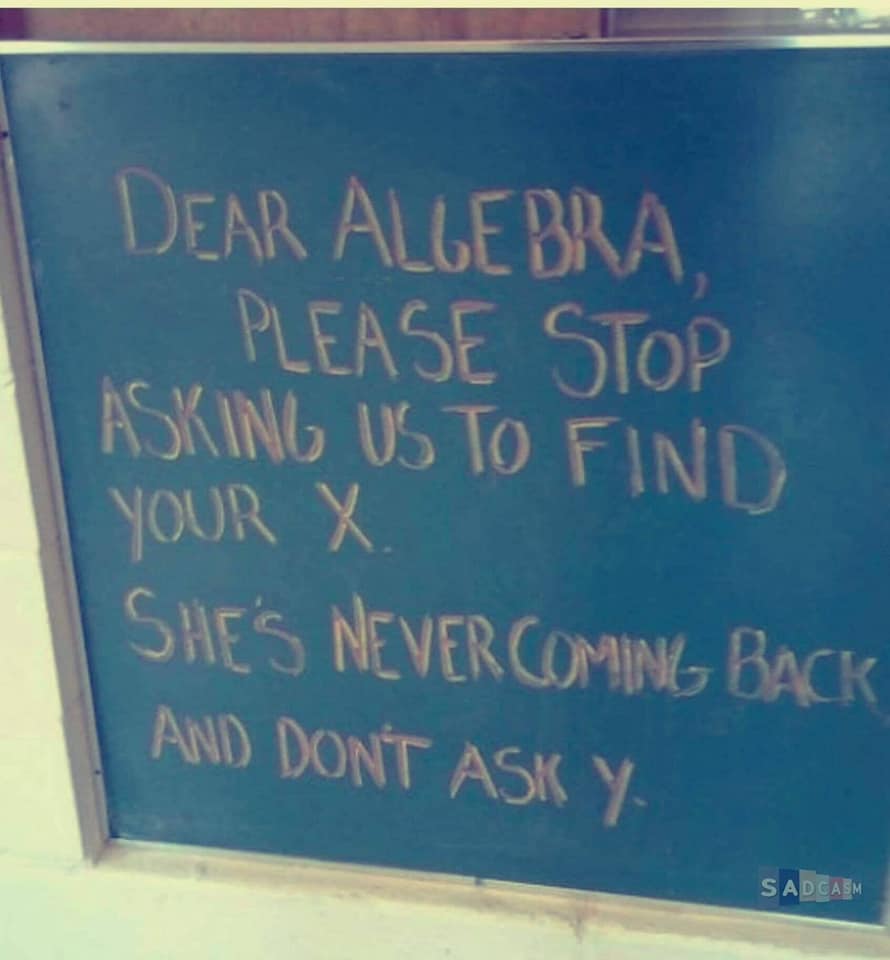 DEAR ALGEBRA,
PLEASE STOP
ASKING US TO FIND
YOUR X.
SHE'S NEVER COMING BACK
AND DON'T ASK Y.
SADCASM